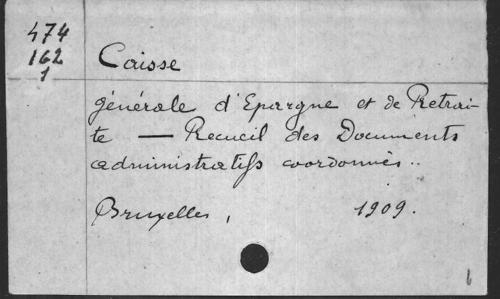 474
162
1
Caisse
générale d'Epargne et de Retrai-
te — Recueil des Documents
administratifs coordonnés..
Bruxelles, 1909.
6